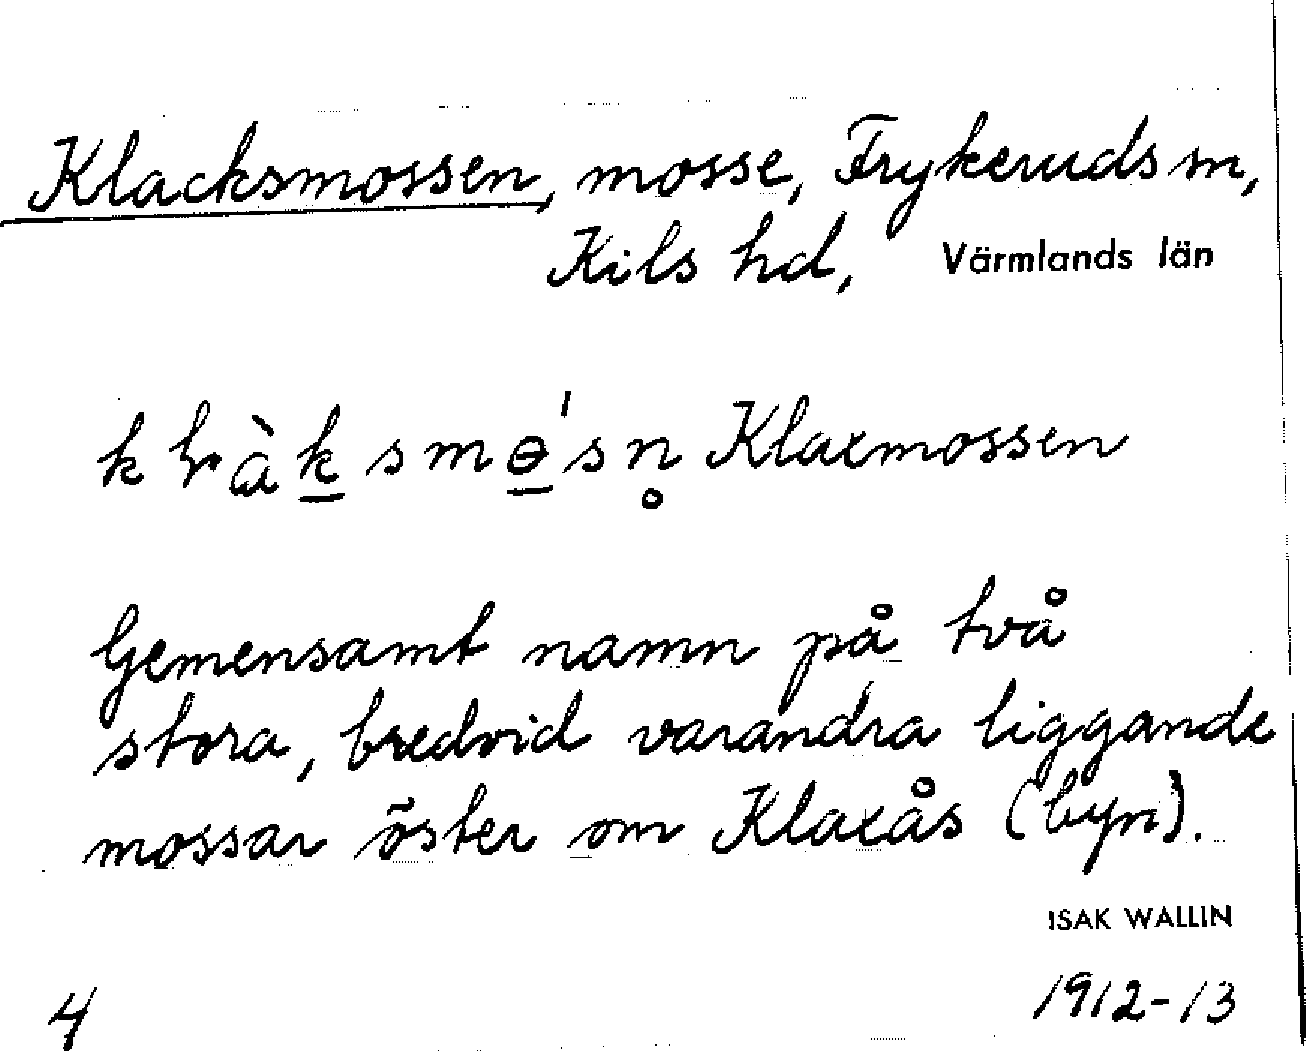 Klacksmossen, mosse, Frykeruds sn,
Kils hd, Värmlands län
Klaxmossen
Gemensamt namn på två
stora, bredvid varandra liggande
mossar öster om Klaxås (byn).
ISAK WALLIN
4 1912-13